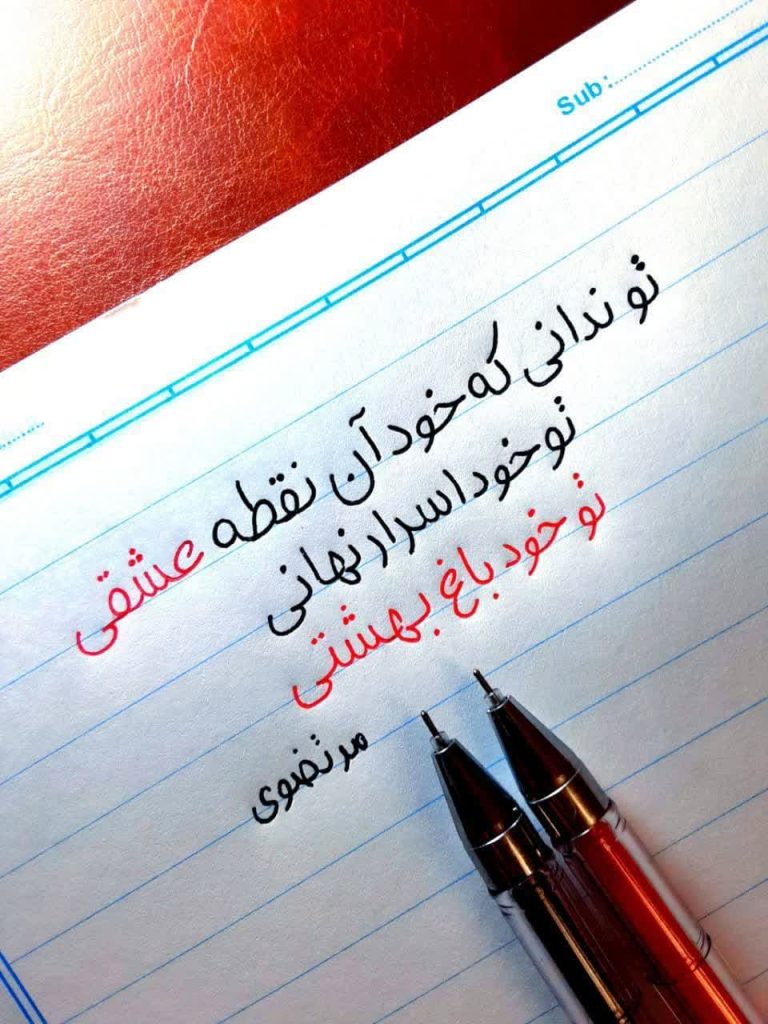 Sub:
تو ندانی که خود آن نقطه عشقی
تو خود اسرار نهانی
تو خود باغ بهشتی
مرتضوی